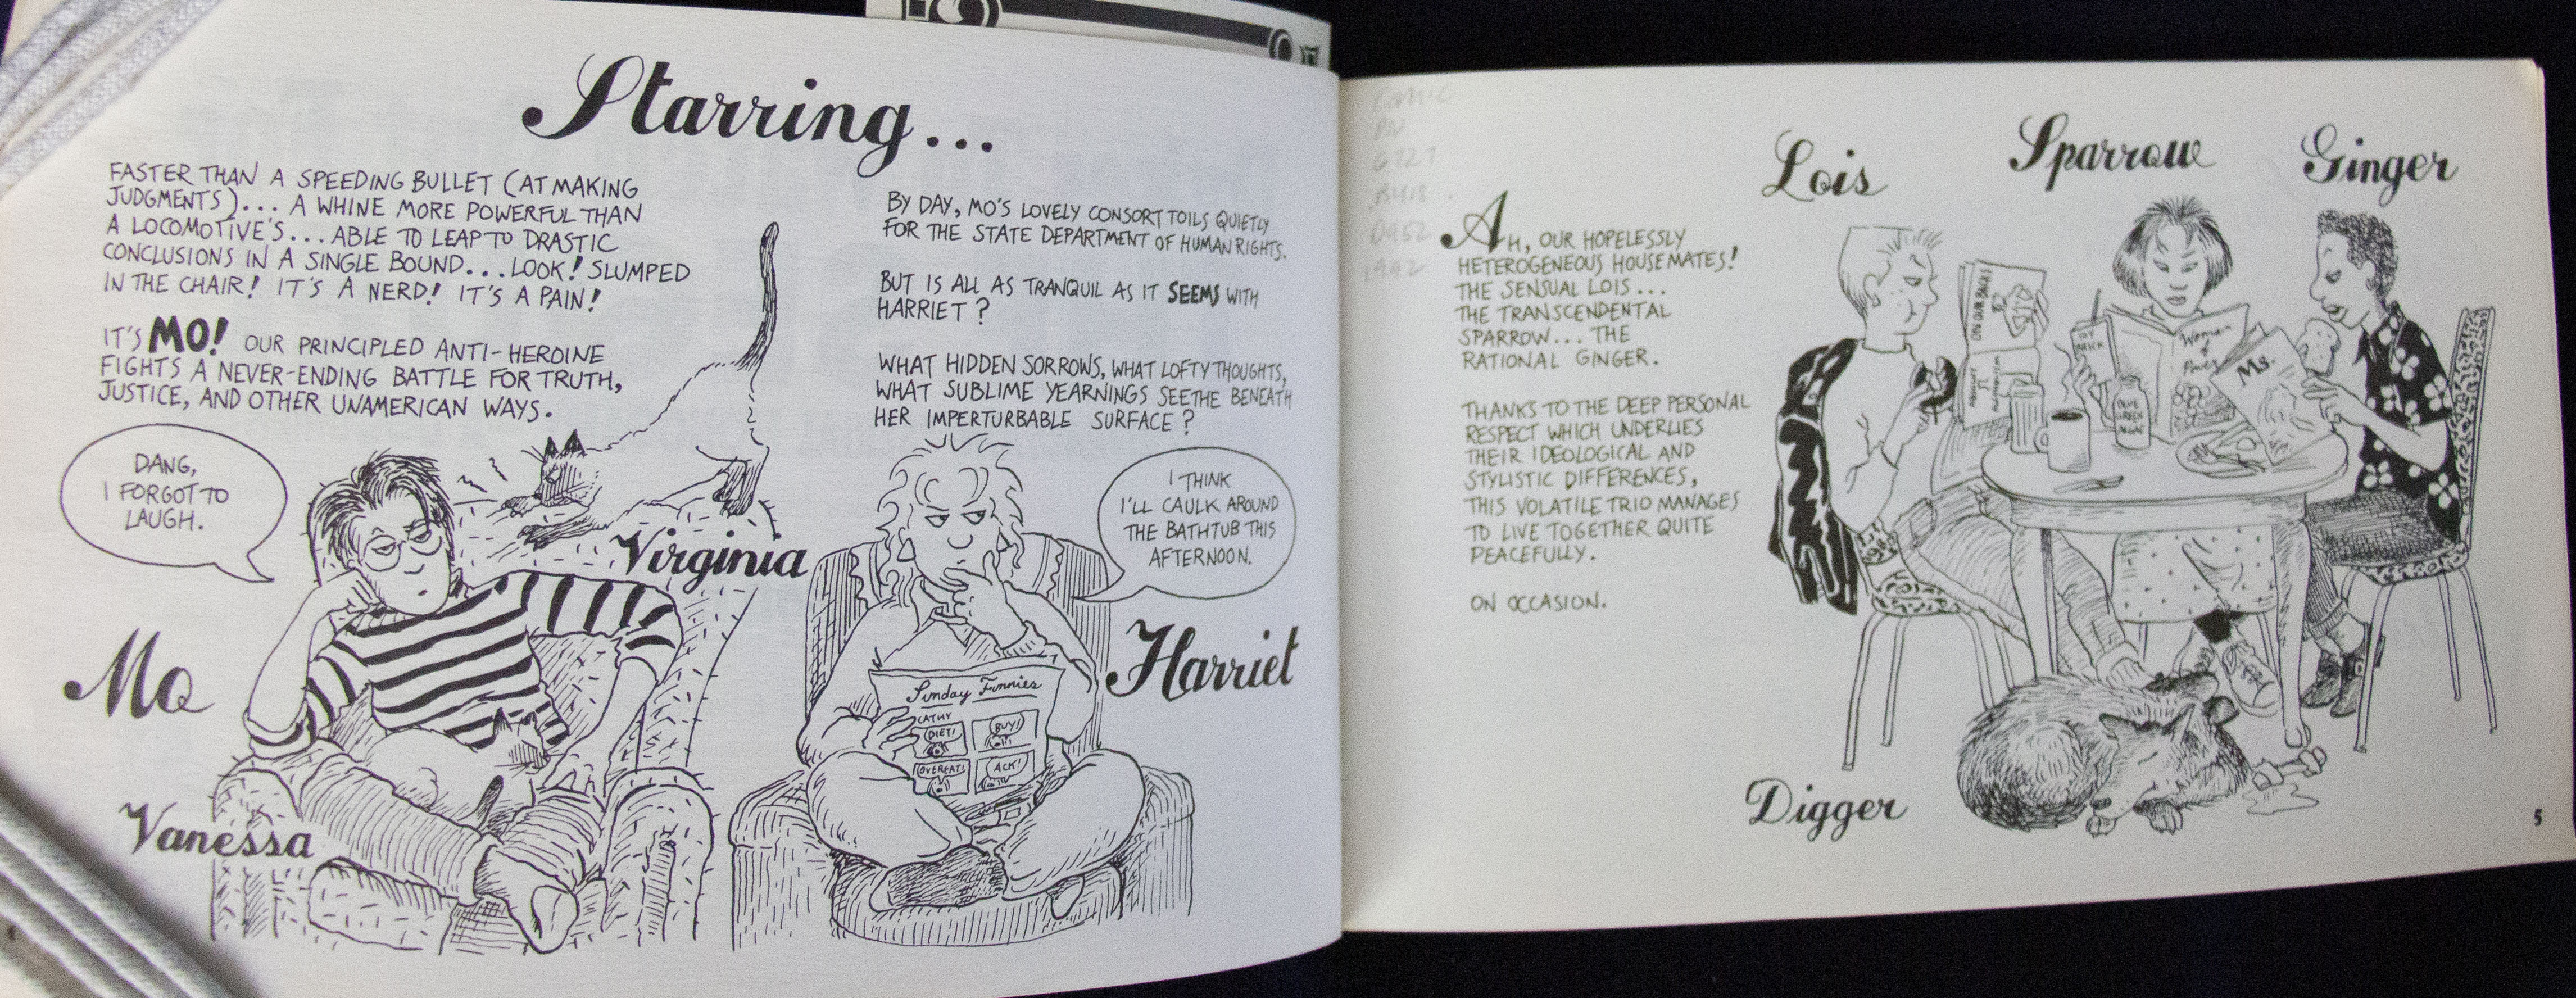 Starring...
FASTER THAN A SPEEDING BULLET (AT MAKING
JUDGMENTS)... A WHINE MORE POWERFUL THAN
A LOCOMOTIVE'S... ABLE TO LEAP TO DRASTIC
CONCLUSIONS IN A SINGLE BOUND... LOOK! SLUMPED
IN THE CHAIR! IT'S A NERD! IT'S A PAIN!
IT'S MO! OUR PRINCIPLED ANTI-HEROINE
FIGHTS A NEVER-ENDING BATTLE FOR TRUTH,
JUSTICE, AND OTHER UNAMERICAN WAYS.
DANG,
I FORGOT TO
LAUGH.
Virginia
Mo
Vanessa
BY DAY, MO'S LOVELY CONSORT TOILS QUIETLY
FOR THE STATE DEPARTMENT OF HUMAN RIGHTS.
BUT IS ALL AS TRANQUIL AS IT SEEMS WITH
HARRIET?
WHAT HIDDEN SORROWS, WHAT LOFTY THOUGHTS,
WHAT SUBLIME YEARNINGS SEETHE BENEATH
HER IMPERTURBABLE SURFACE?
I THINK
I'LL CAULK AROUND
THE BATHTUB THIS
AFTERNOON.
Harriet
Sunday Funnies
CATHY
DIET!
BUY!
OVEREAT!
ACK!
COMIC
PN
6727
B418
1992
Lois
Sparrow
Ginger
AH, OUR HOPELESSLY
HETEROGENEOUS HOUSEMATES!
THE SENSUAL LOIS...
THE TRANSCENDENTAL
SPARROW... THE
RATIONAL GINGER.
THANKS TO THE DEEP PERSONAL
RESPECT WHICH UNDERLIES
THEIR IDEOLOGICAL AND
STYLISTIC DIFFERENCES,
THIS VOLATILE TRIO MANAGES
TO LIVE TOGETHER QUITE
PEACEFULLY.
ON OCCASION.
ON OUR BACKS
SOY
Woman
of
Power
Ms.
BLUE
GREEN
ALGAE
Digger
5